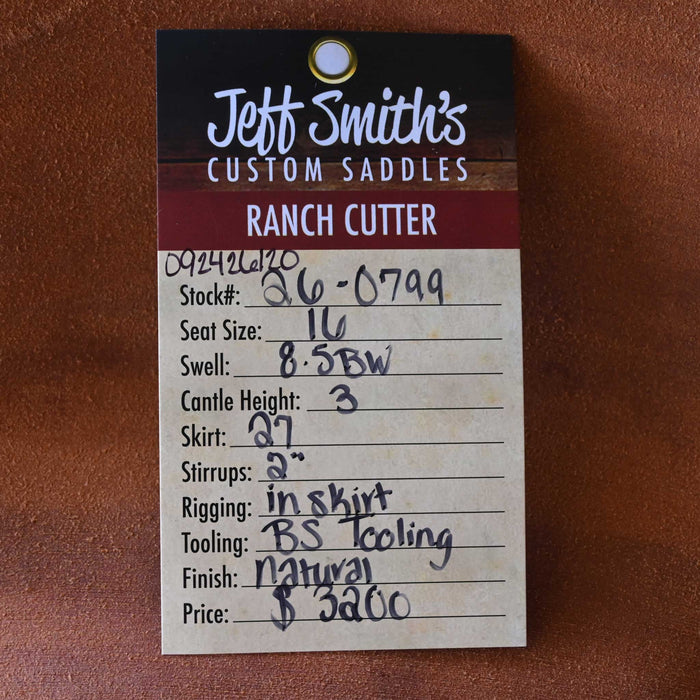 Jeff Smith's
CUSTOM SADDLES
RANCH CUTTER
092426120
Stock#: 26-0799
Seat Size: 16
Swell: 8.5BW
Cantle Height: 3
Skirt: 27
Stirrups: 2"
Rigging: in skirt
Tooling: BS Tooling
Finish: natural
Price: $ 3200